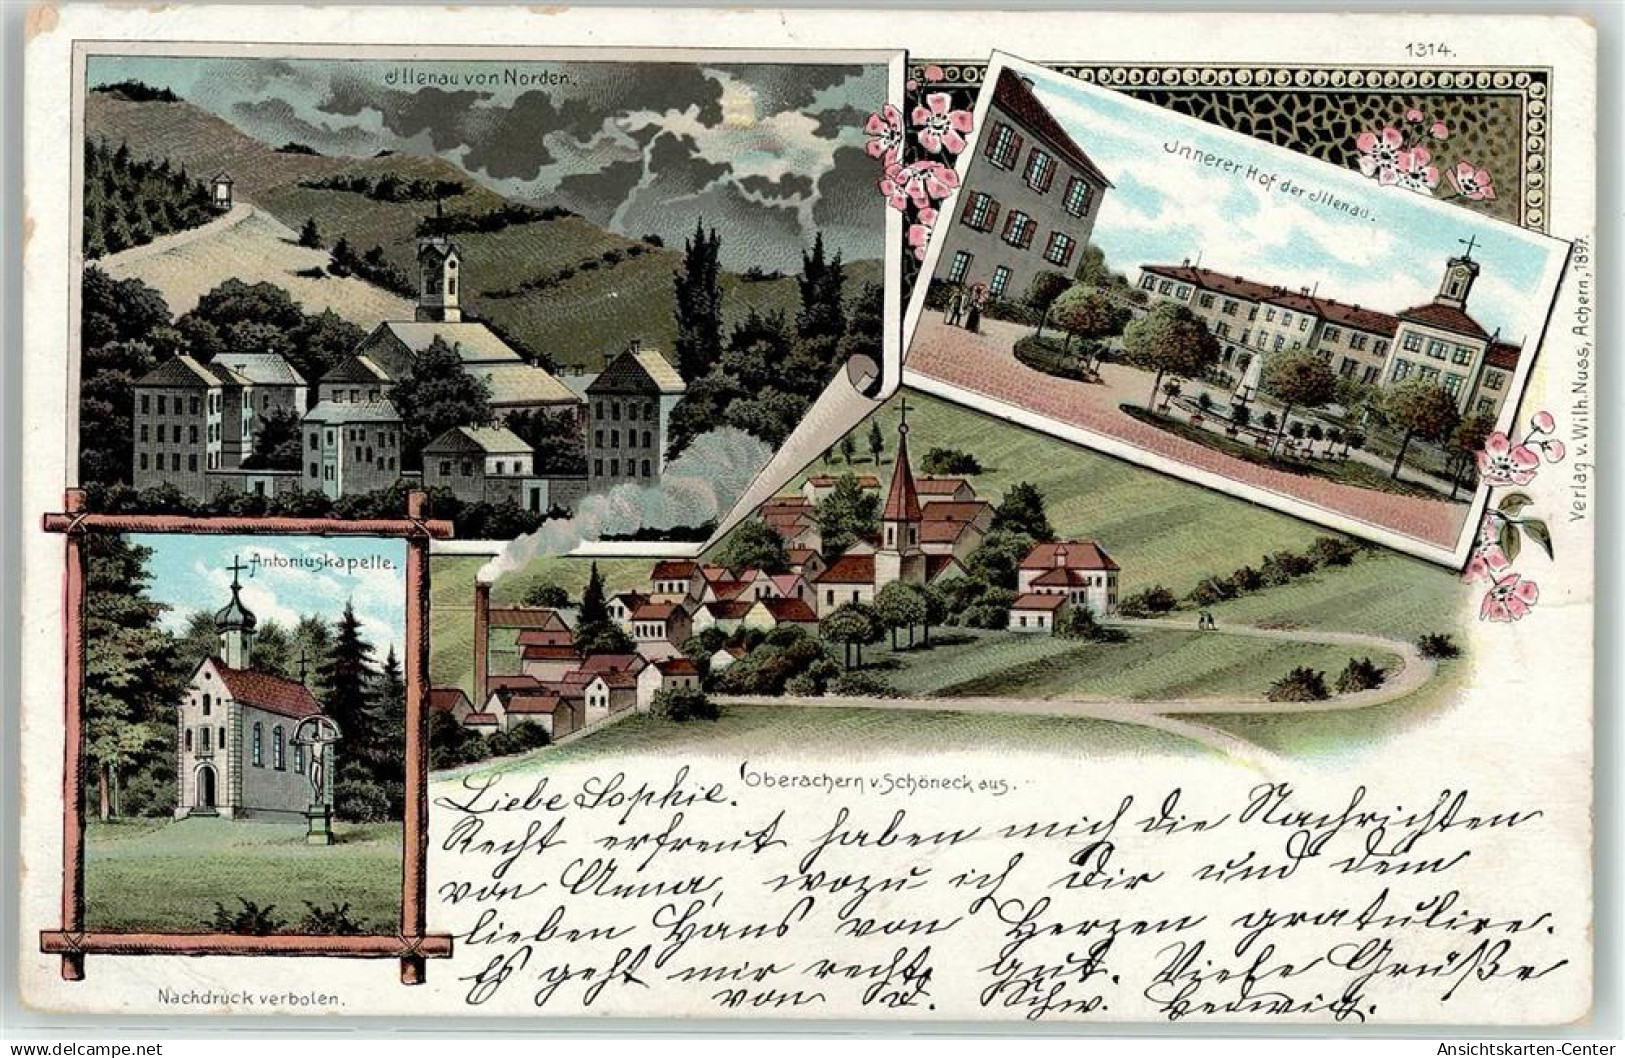 1314.
Illenau von Norden.
Innerer Hof der Illenau.
Verlag v. Wilh. Nuss, Achern, 1897.
Antoniuskapelle.
Oberachern v. Schöneck aus.
Liebe Sophie.
Recht erfreut haben mich die Nachrichten
von Anna, wozu ich Dir und dem
lieben Hans von Herzen gratulire.
Es geht mir recht gut. Viele Grüße
von d. Schw. Hedwig.
Nachdruck verboten.
delcampe.net
Ansichtskarten-Center